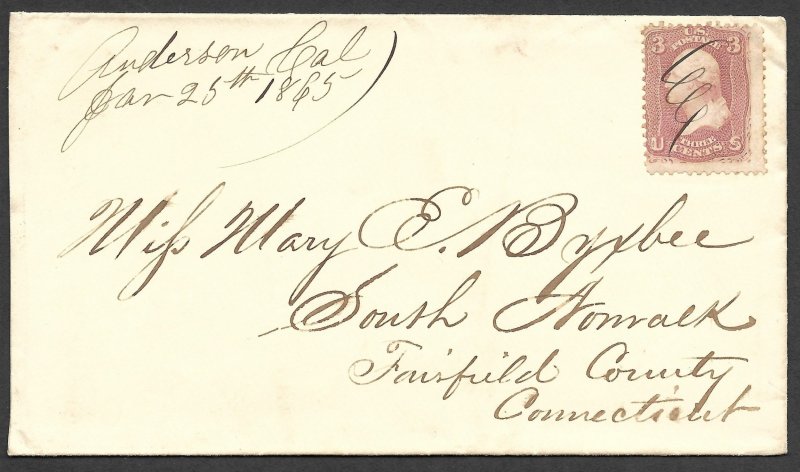 Anderson Cal
Jan 25th 1865
U.S.
POSTAGE
3 3
THREE
CENTS
U S
Miss Mary E. Byxbee
South Norwalk
Fairfield County
Connecticut